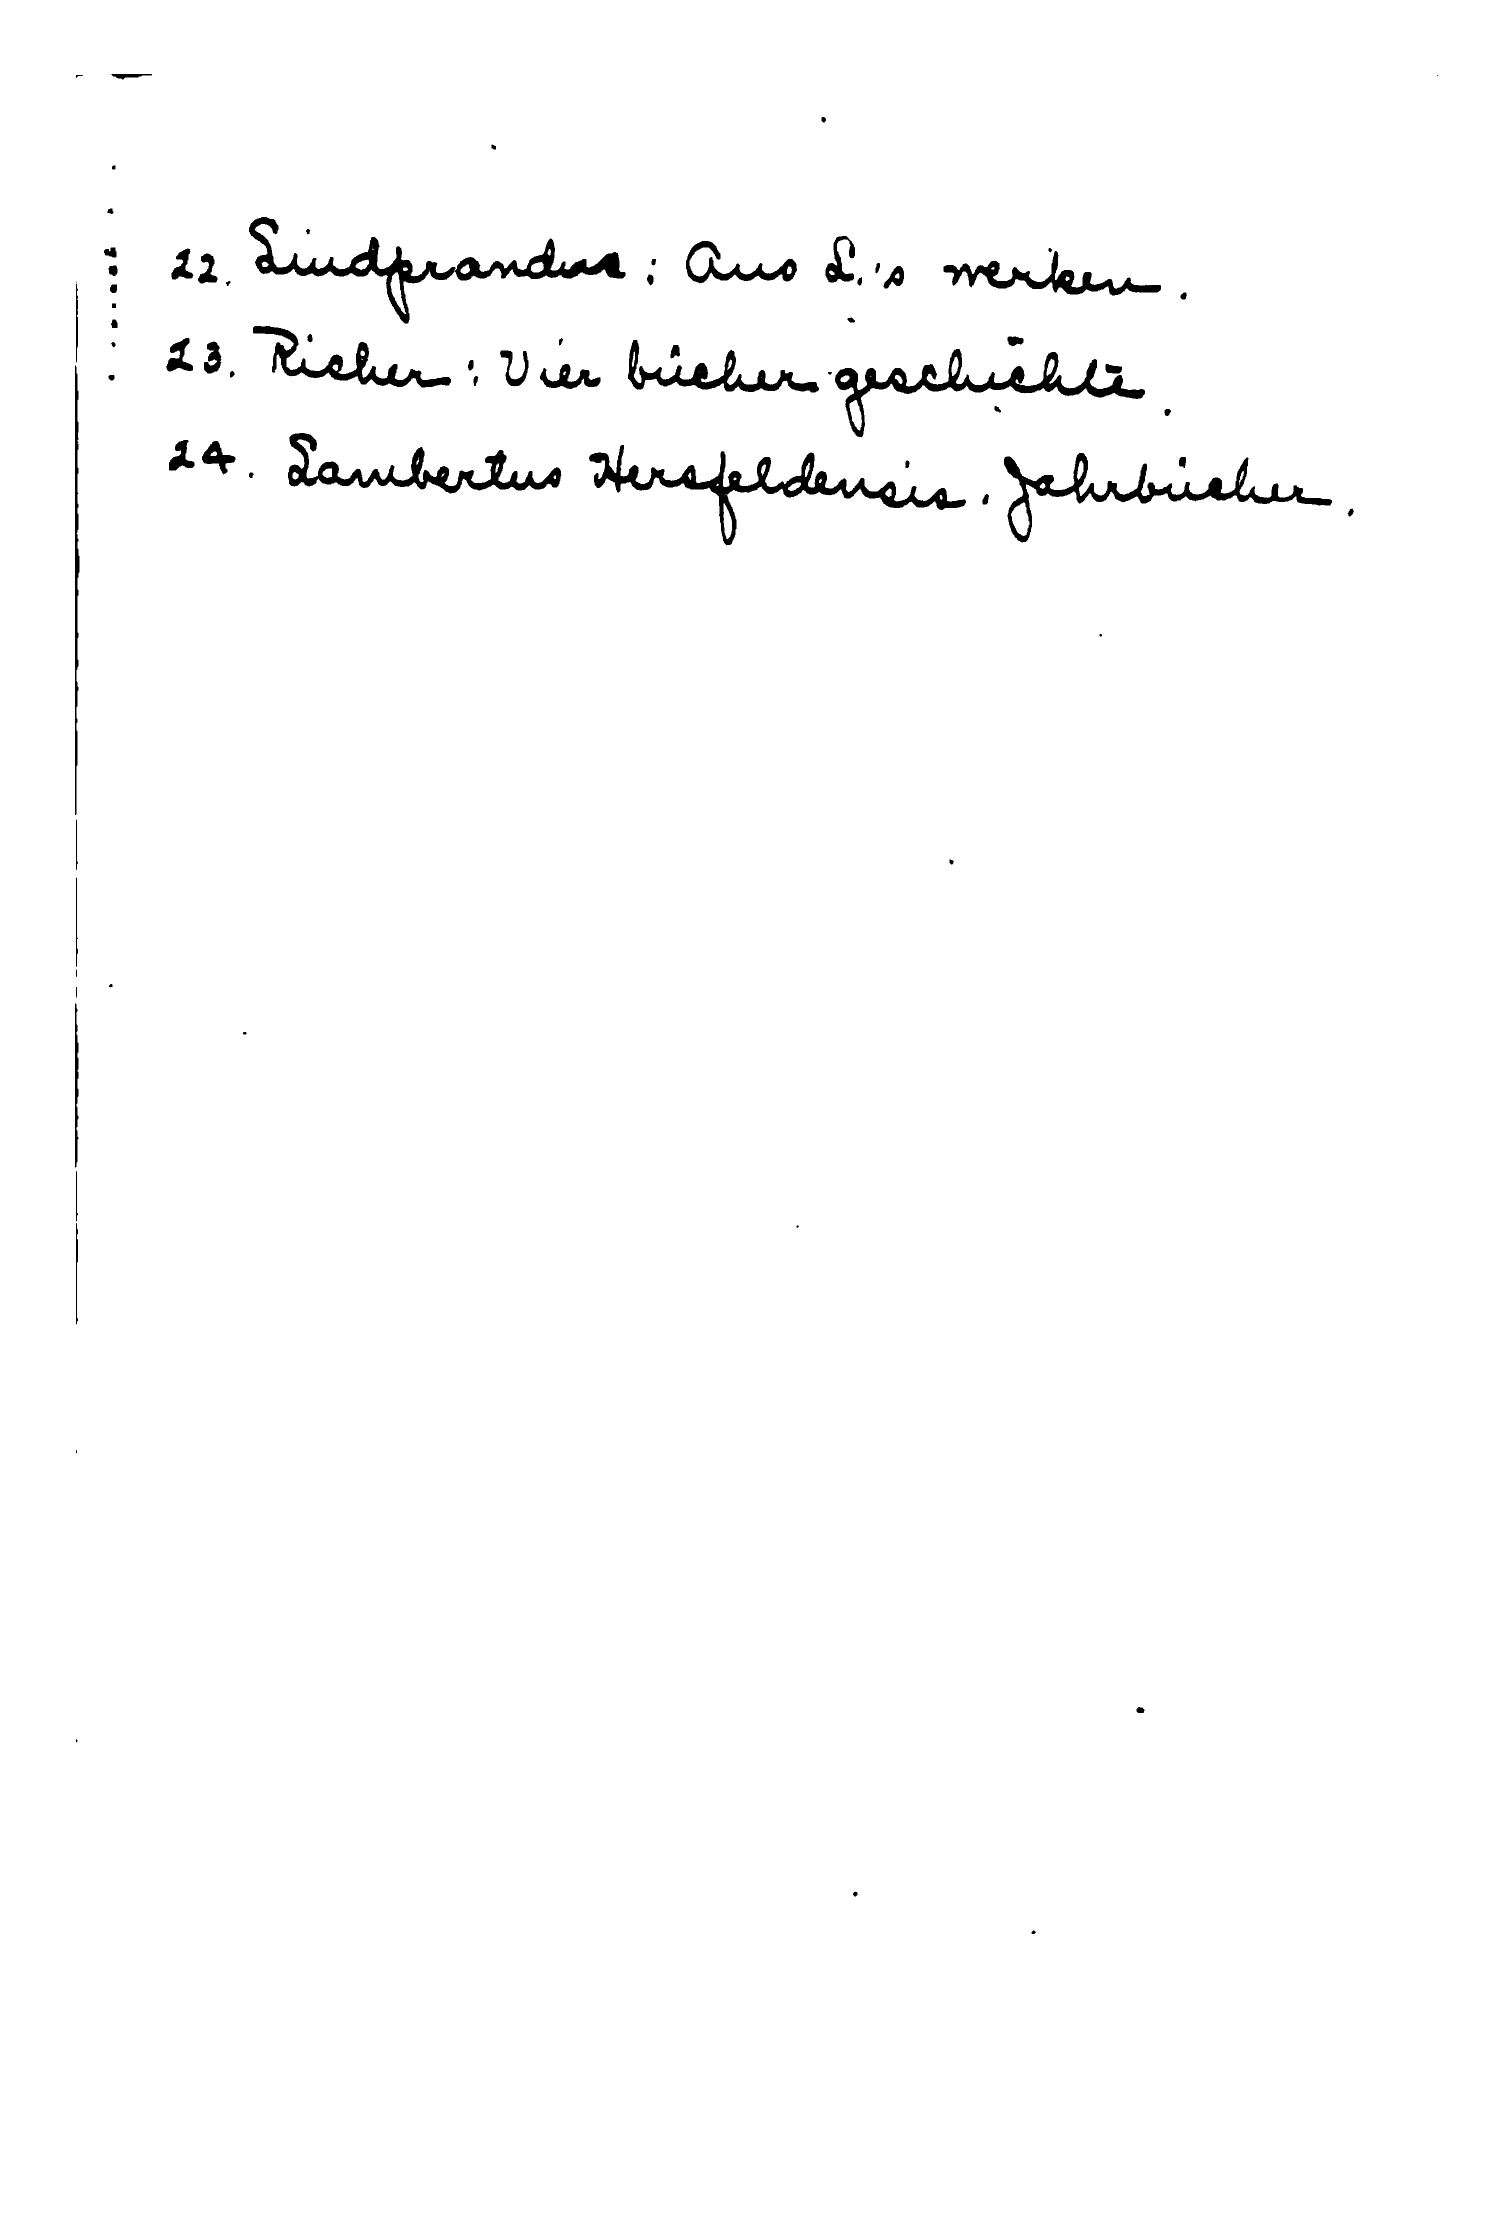 22. Liudprandus: Aus L.'s werken.
23. Richer: Vier bücher geschichte.
24. Lambertus Hersfeldensis. Jahrbücher.